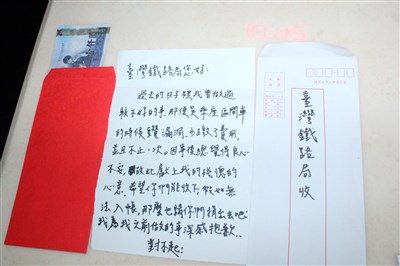 臺灣鐵路局您好:
過去的日子裡我曾做過
較不好的事,那便是乘座區間車
的時候鑽漏洞,少缴了費用,
並且不止一次。因事後總覺得良心
不安,故此獻上我的後德的
心意,希望你們能收下,假如無
法入帳,那麼也請你們捐出去吧
我為我之前做的事深感抱歉...
對不起!
臺灣鐵路局收